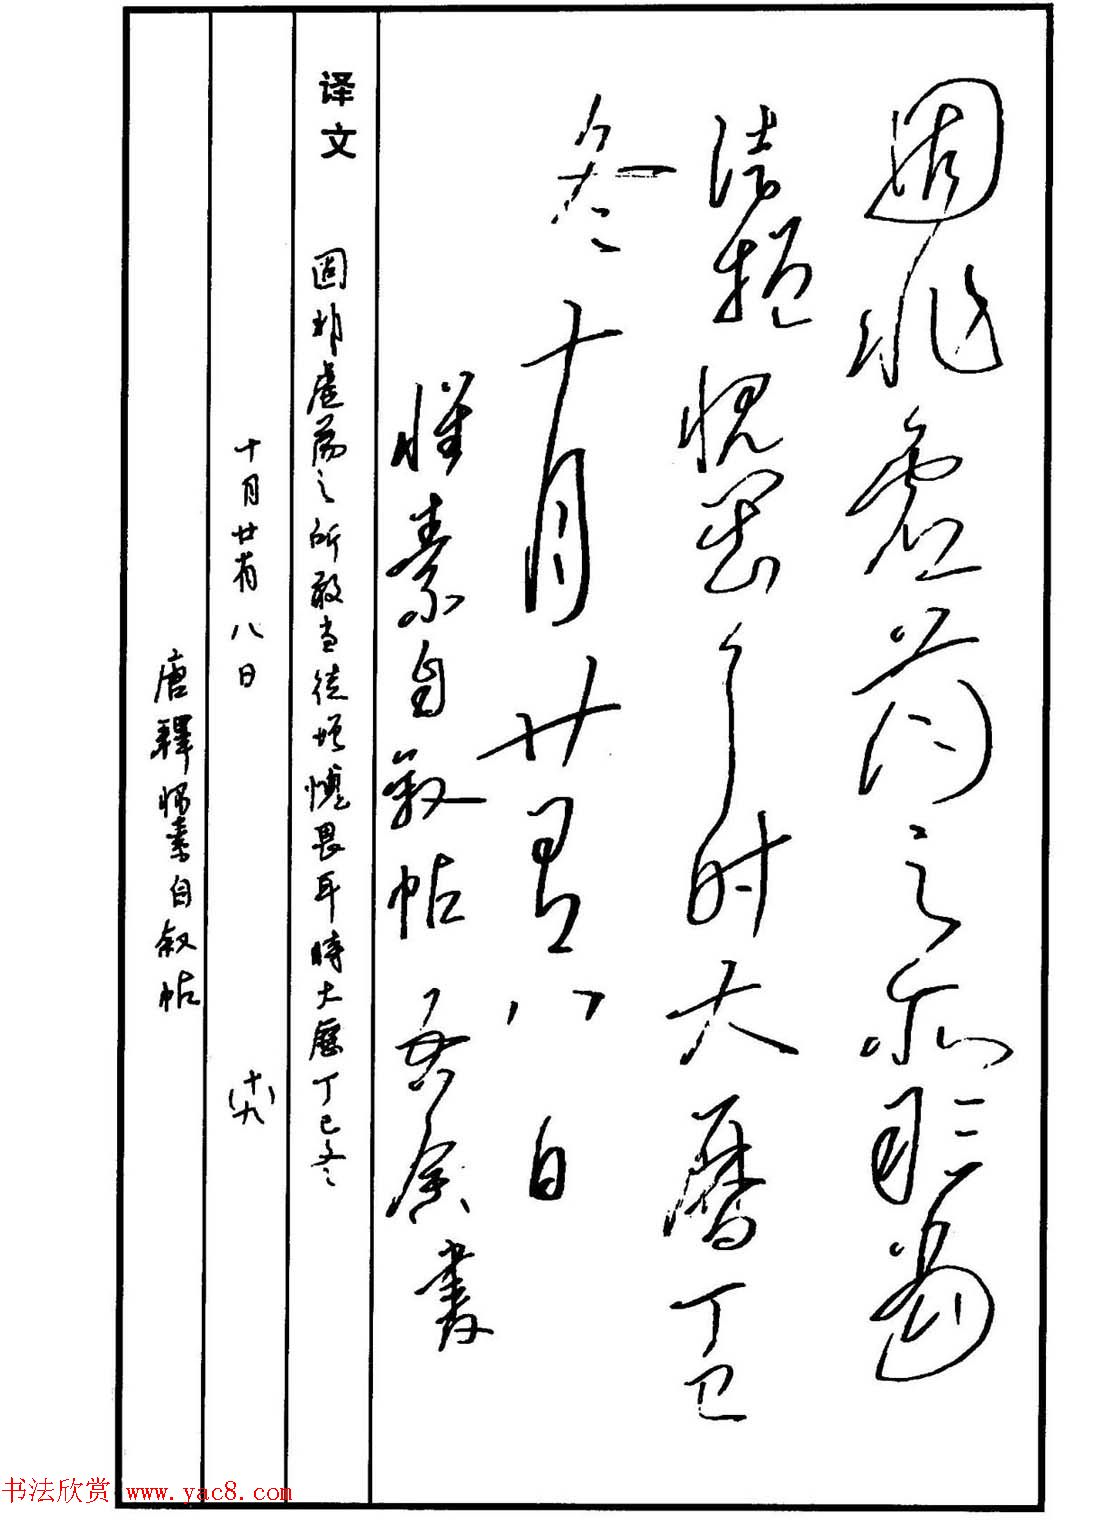 固非虚荡之所敢当
徒增愧畏耳时大曆丁巳
冬十月廿有八日
懷素自叙帖 書
译文 固非虚荡之所敢当徒增愧畏耳時大曆丁巳冬
十月廿有八日 (十九)
唐釋懷素自叙帖
书法欣赏 www.yac8.com